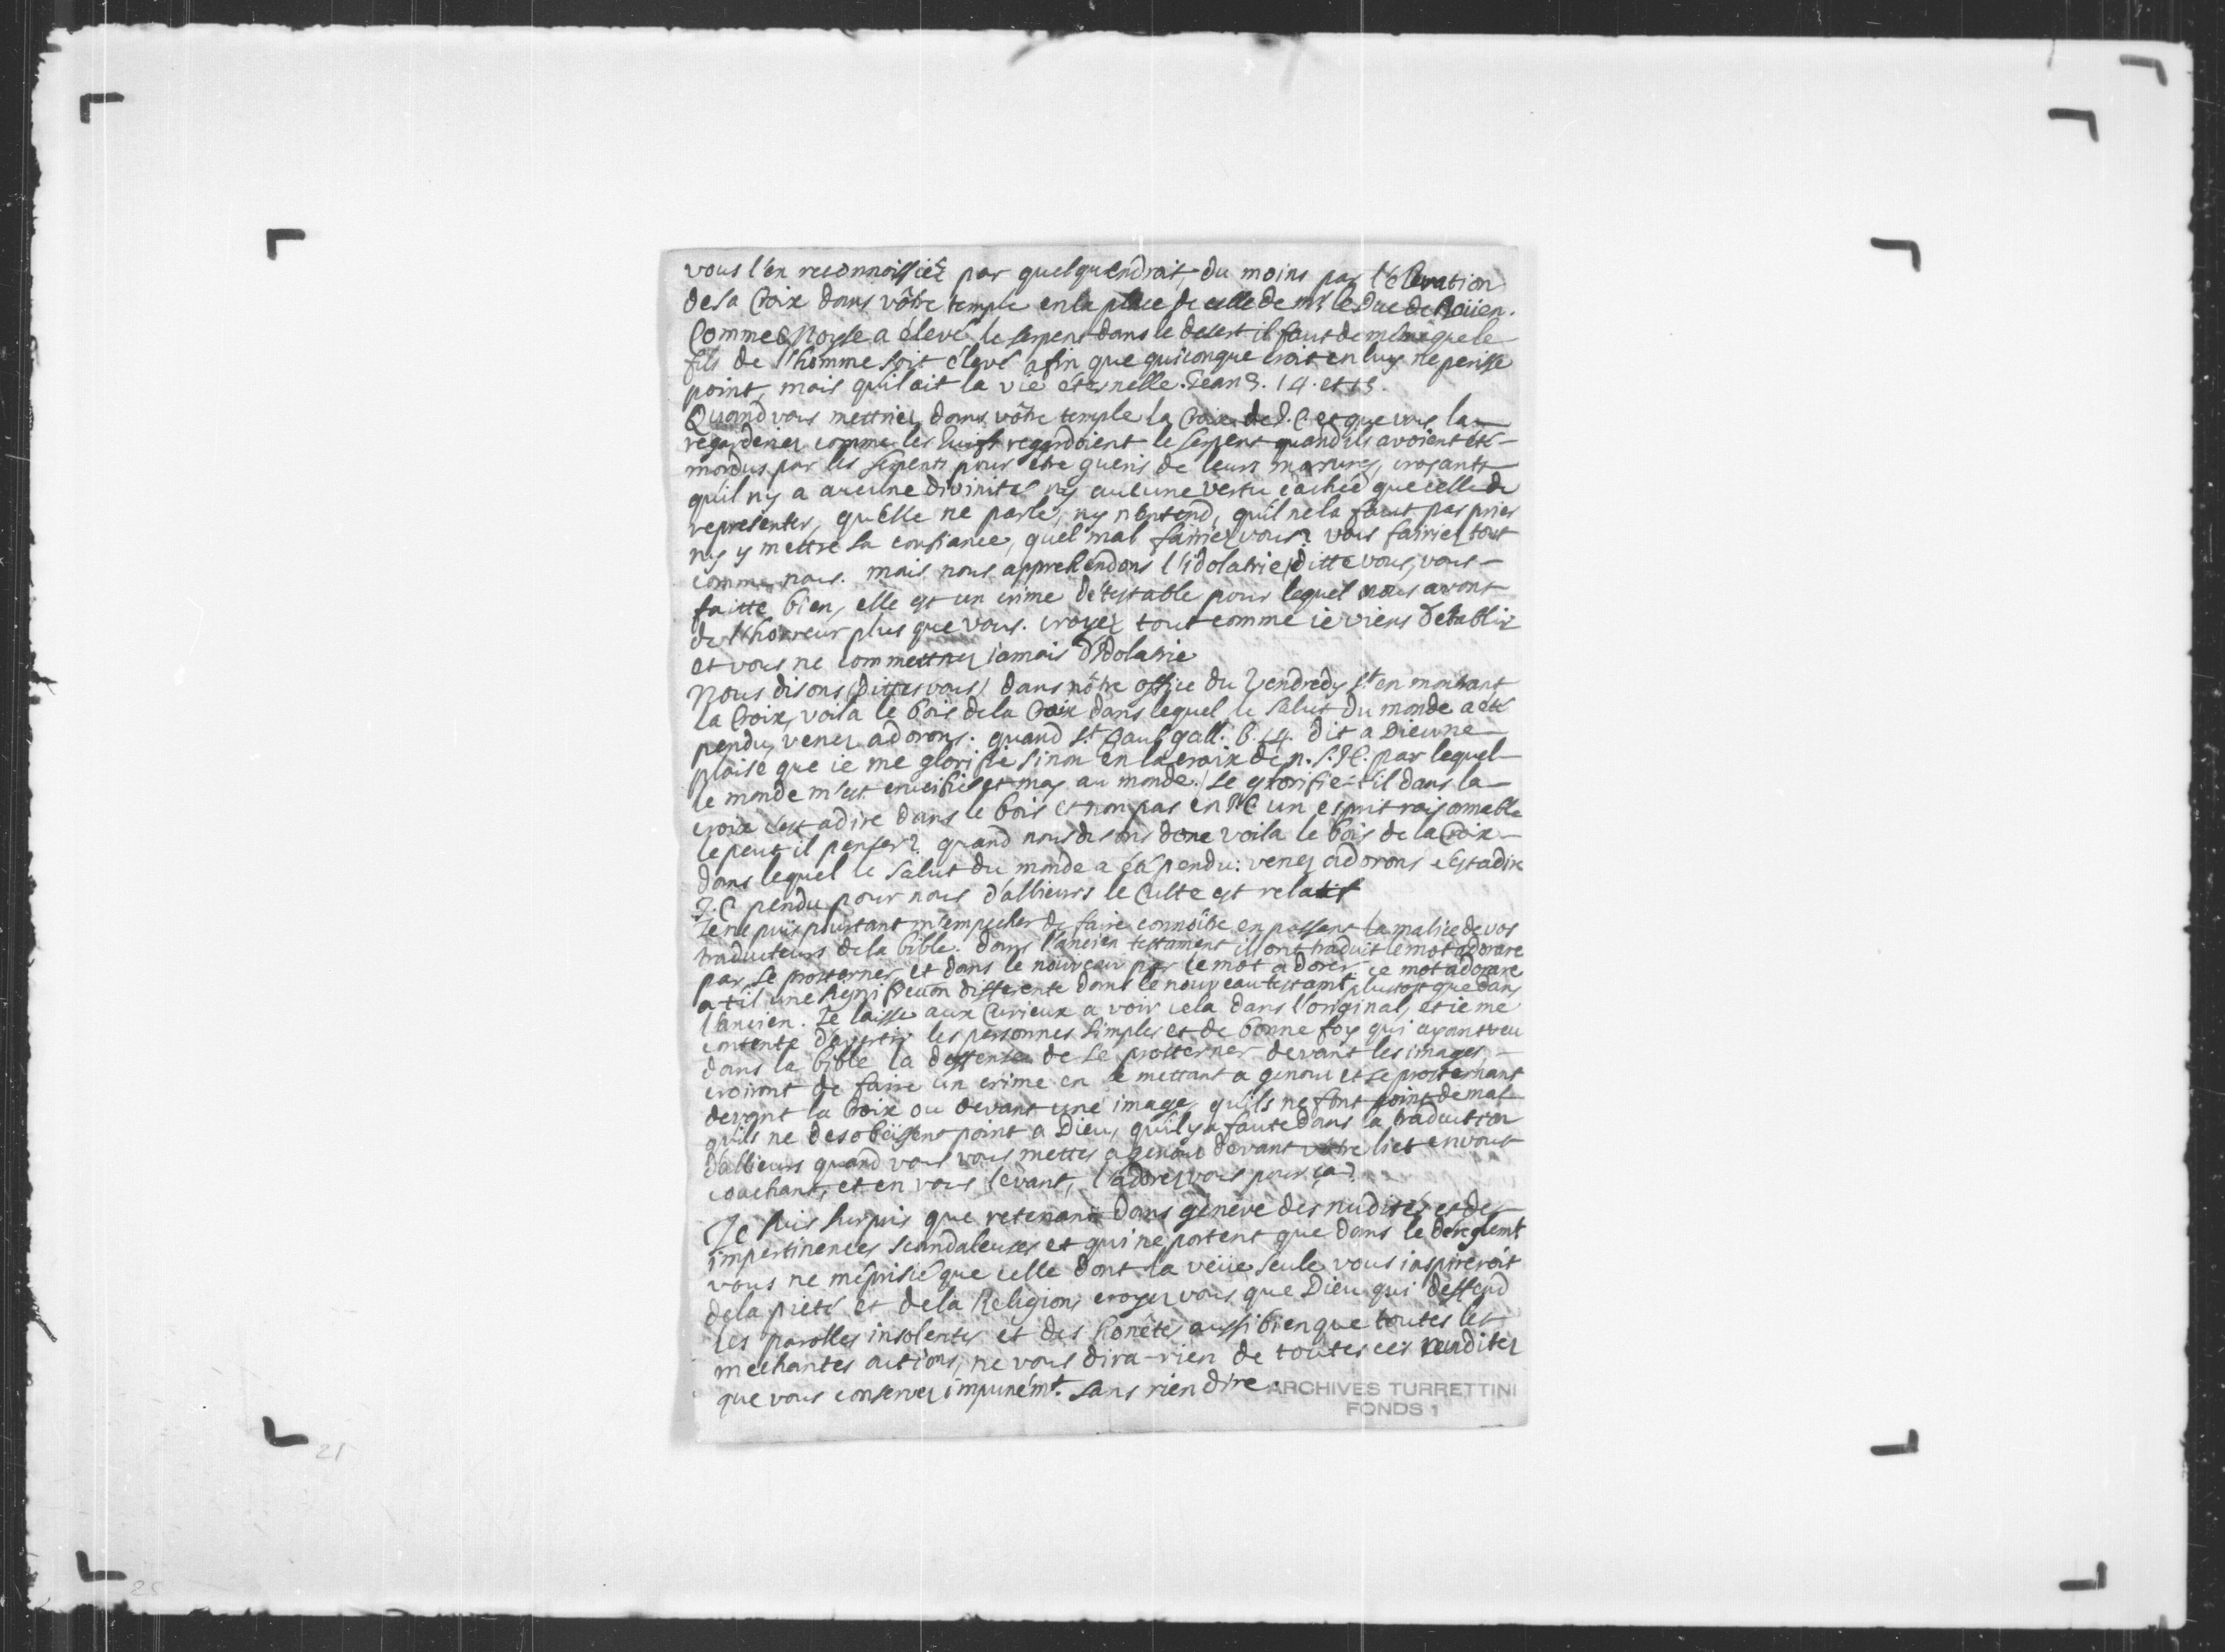 vous l'en reconnoissiéz par quelqu'endroit, du moins par l'elevation
de sa Croix dans vôtre temple en la place de celle de mr. le Duc de Roüen.
Comme Moyse a élevé le serpent dans le desert il faut de mesme que le
fils de l'homme soit élevé afin que quiconque croit en luy ne perisse
point, mais qu'il ait la vie éternelle. Jean 3. 14. et 15.
Quand vous mettriez dans vôtre temple la Croix de J. C. et que vous la
regarderiez comme les Juifs regardoient le serpent quand ils avoient été
mordus par les serpents pour être gueris de leurs morsures, croyants
qu'il ny a aucune divinité ny aucune vertu cachée que celle de
representer, qu'elle ne parle, ny n'entend, qu'il ne la faut pas prier
ny y mettre sa confiance, quel mal fairiez vous? vous fairiez tout
comme nous. mais nous apprehendons l'idolatrie, ditte vous, vous
faitte bien, elle est un crime détestable pour lequel nous avons
de l'horreur plus que vous. croyez tout comme ie viens d'etablir
et vous ne commettrez iamais d'Idolatrie
Nous disons (dittes vous) dans nôtre office du Vendredy st. en montrant
la Croix, voila le bois de la Croix dans lequel le salut du monde a été
pendu, venez adorons. quand st. Paul gall. 6. 14. dit a Dieu ne
plaise que ie me glorifie sinon en la croix de n. s. J C. par lequel
le monde m'est crucifié et moy au monde. se glorifie-t'il dans la
croix c'est a dire dans le bois et non pas en J C un esprit raisonnable
le peut il penser? quand nous disons donc voila le bois de la Croix
dans lequel le salut du monde a été pendu: venez adorons c'est a dire
J. C pendu pour nous d'allieurs le Culte est relatif
Je ne puis pourtant m'empecher de faire connôître en passant la malice de vos
traducteurs de la bible. dans l'ancien testament ils ont traduit le mot adorare
par, se prosterner, et dans le nouveau par le mot adorer. ce mot adorare
a t il une signification differente dans le nouveau testamt. plustost que dans
l'ancien. Je laisse aux Curieux a voir cela dans l'original, et ie me
contente d'avertir les personnes simples et de bonne foy qui ayant veu
dans la bible la deffense de se prosterner devant les images,
croiront de faire un crime en se mettant a genoux et se prosternant
devant la Croix ou devant une image, qu'ils ne font point de mal
qu'ils ne desobeissent point a Dieu, qu'il y a faute dans la traduction
d'allieurs quand vous vous mettes a genoux devant votre lict en vous
couchant, et en vous levant, l'adorez vous pour ça?
Je suis surpris que retenant dans genéve des nudités et des
impertinences scandaleuses et qui ne portent que dans le dereglemt
vous ne méprisié que celle dont la veüe seule vous inspireroit
de la pieté et de la Religion, croyez vous que Dieu qui deffend
les parolles insolentes et des honêtes aussi bien que toutes les
mechantes actions, ne vous dira-rien de toutes ces nuditez
que vous conservez impunémt. sans rien dire.
ARCHIVES TURRETTINI
FONDS 1
21
25